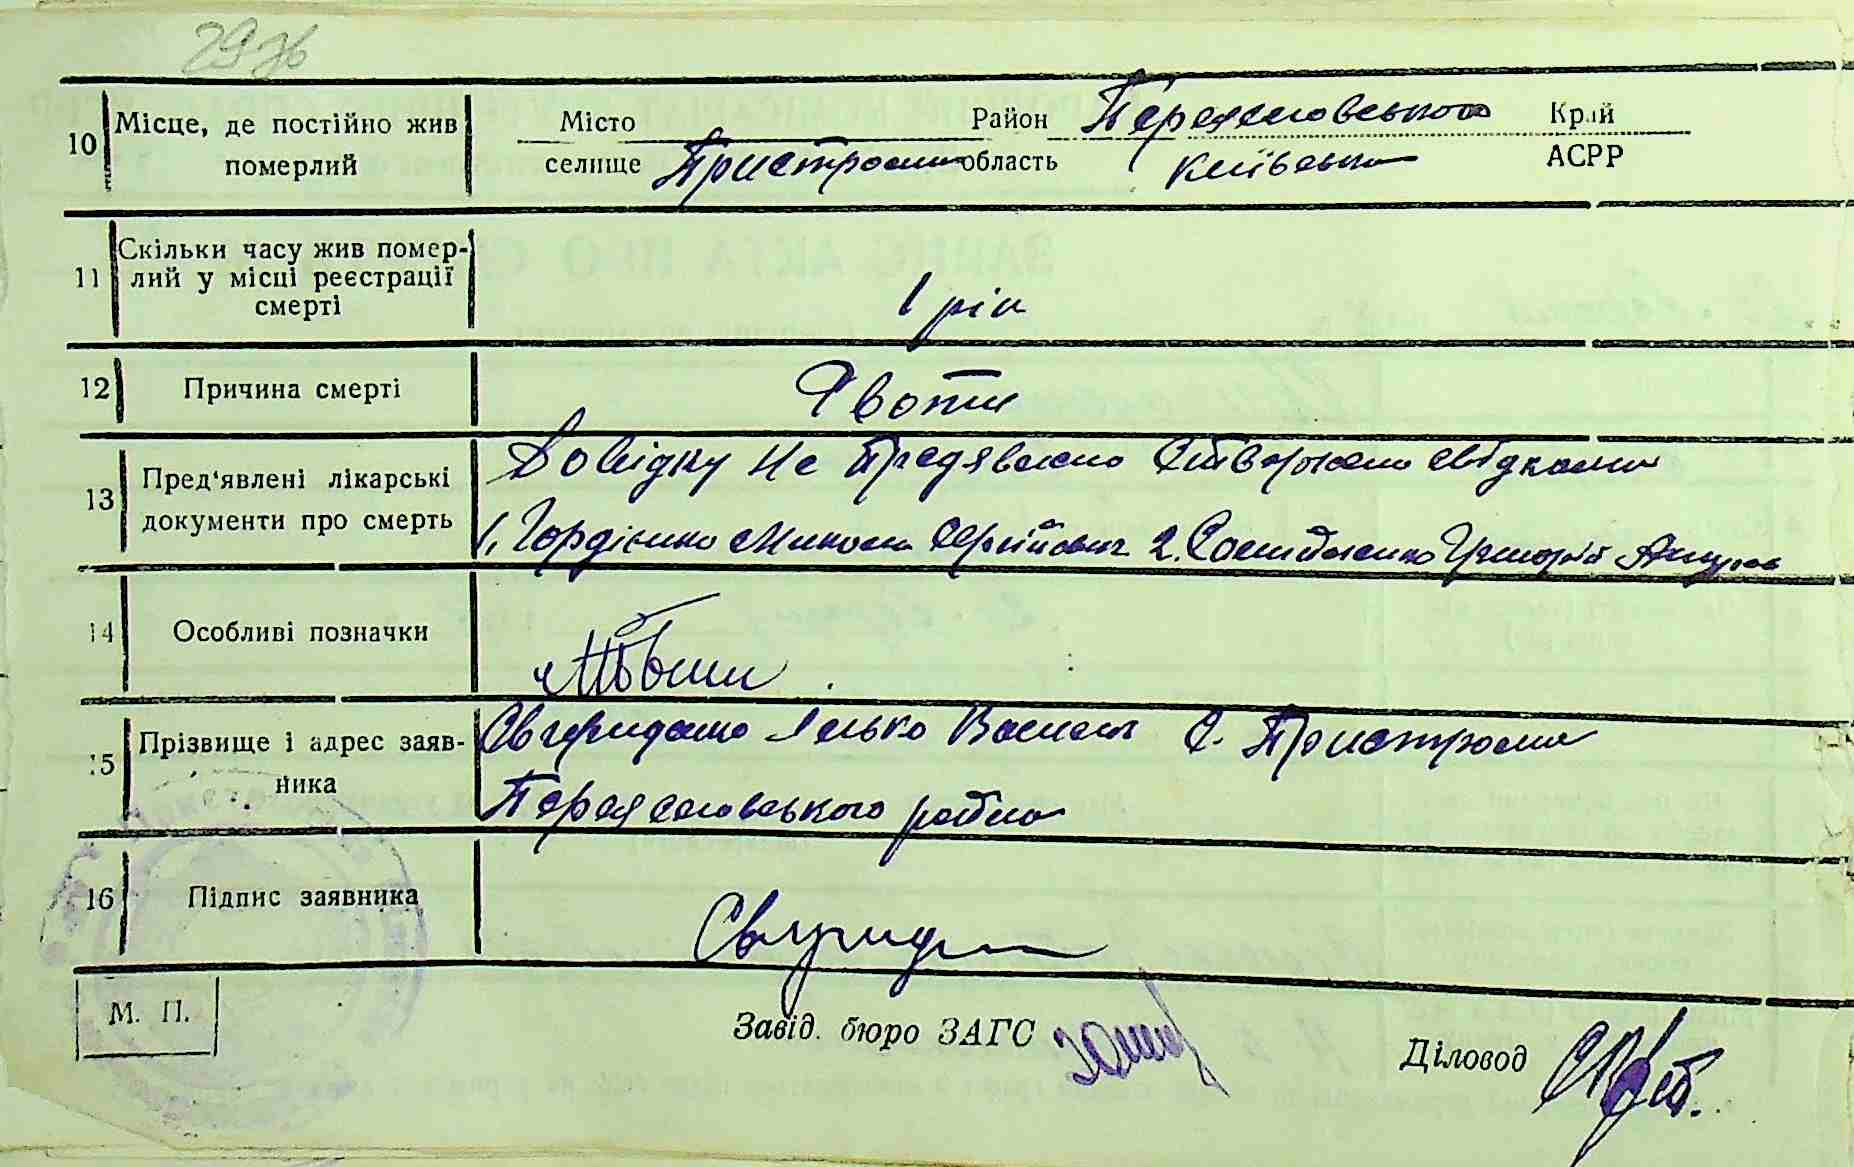 2976
10 Місце, де постійно жив померлий
Місто Район Переяславського Край
селище Пристроми область Київська АСРР
11 Скільки часу жив померлий у місці реєстрації смерті
1 рік
12 Причина смерті
Рвоти
13 Пред'явлені лікарські документи про смерть
Довідку не предявлено Стверджено свідками
1, Гордієнко Микола Сергійович 2. Григорій
14 Особливі позначки
15 Прізвище і адрес заявника
Василь с. Пристроми
Переяславського району
16 Підпис заявника
М. П.
Завід. бюро ЗАГС
Діловод